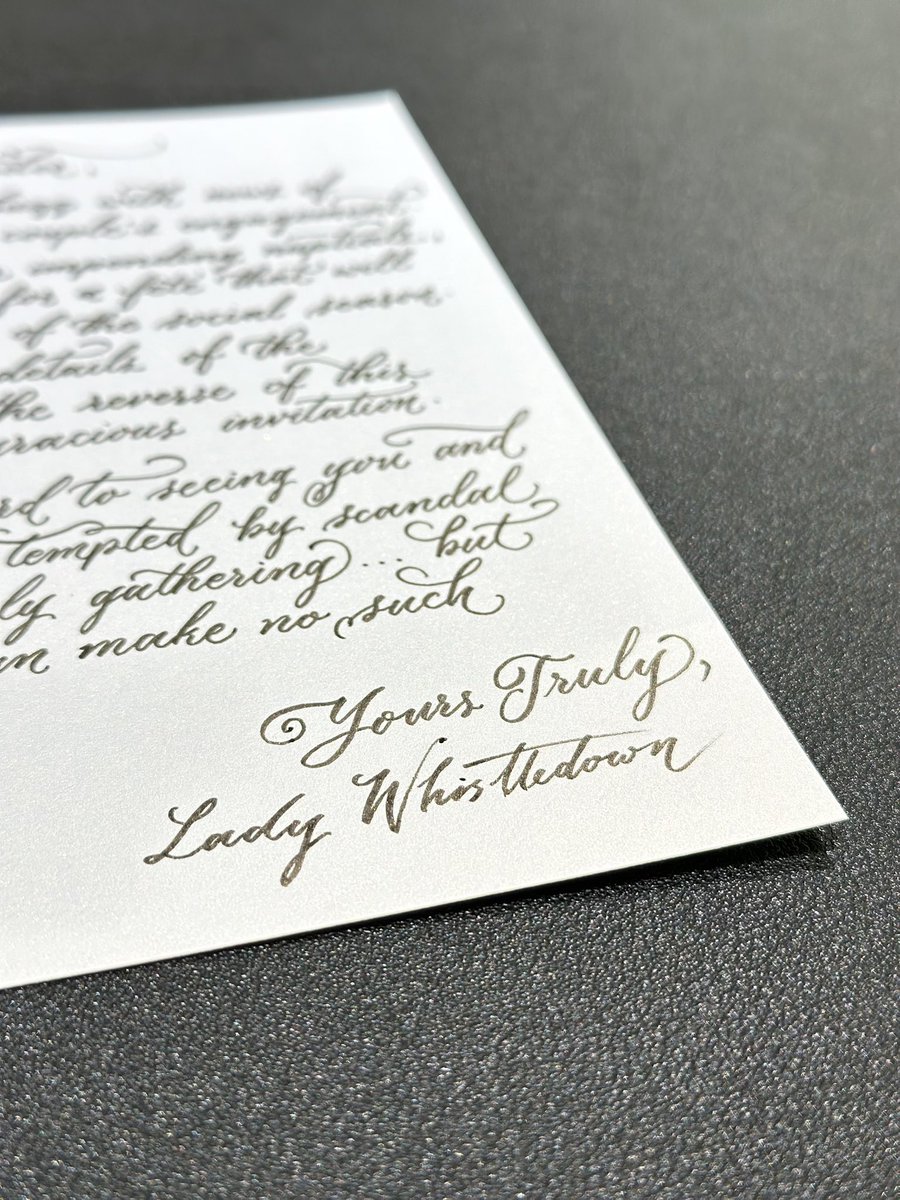 with news of
couple's engagement
impending nuptials,
for a fête that will
of the social season.
details of the
the reverse of this
gracious invitation.
to seeing you and
tempted by scandal
gathering... but
make no such
Yours Truly,
Lady Whistledown